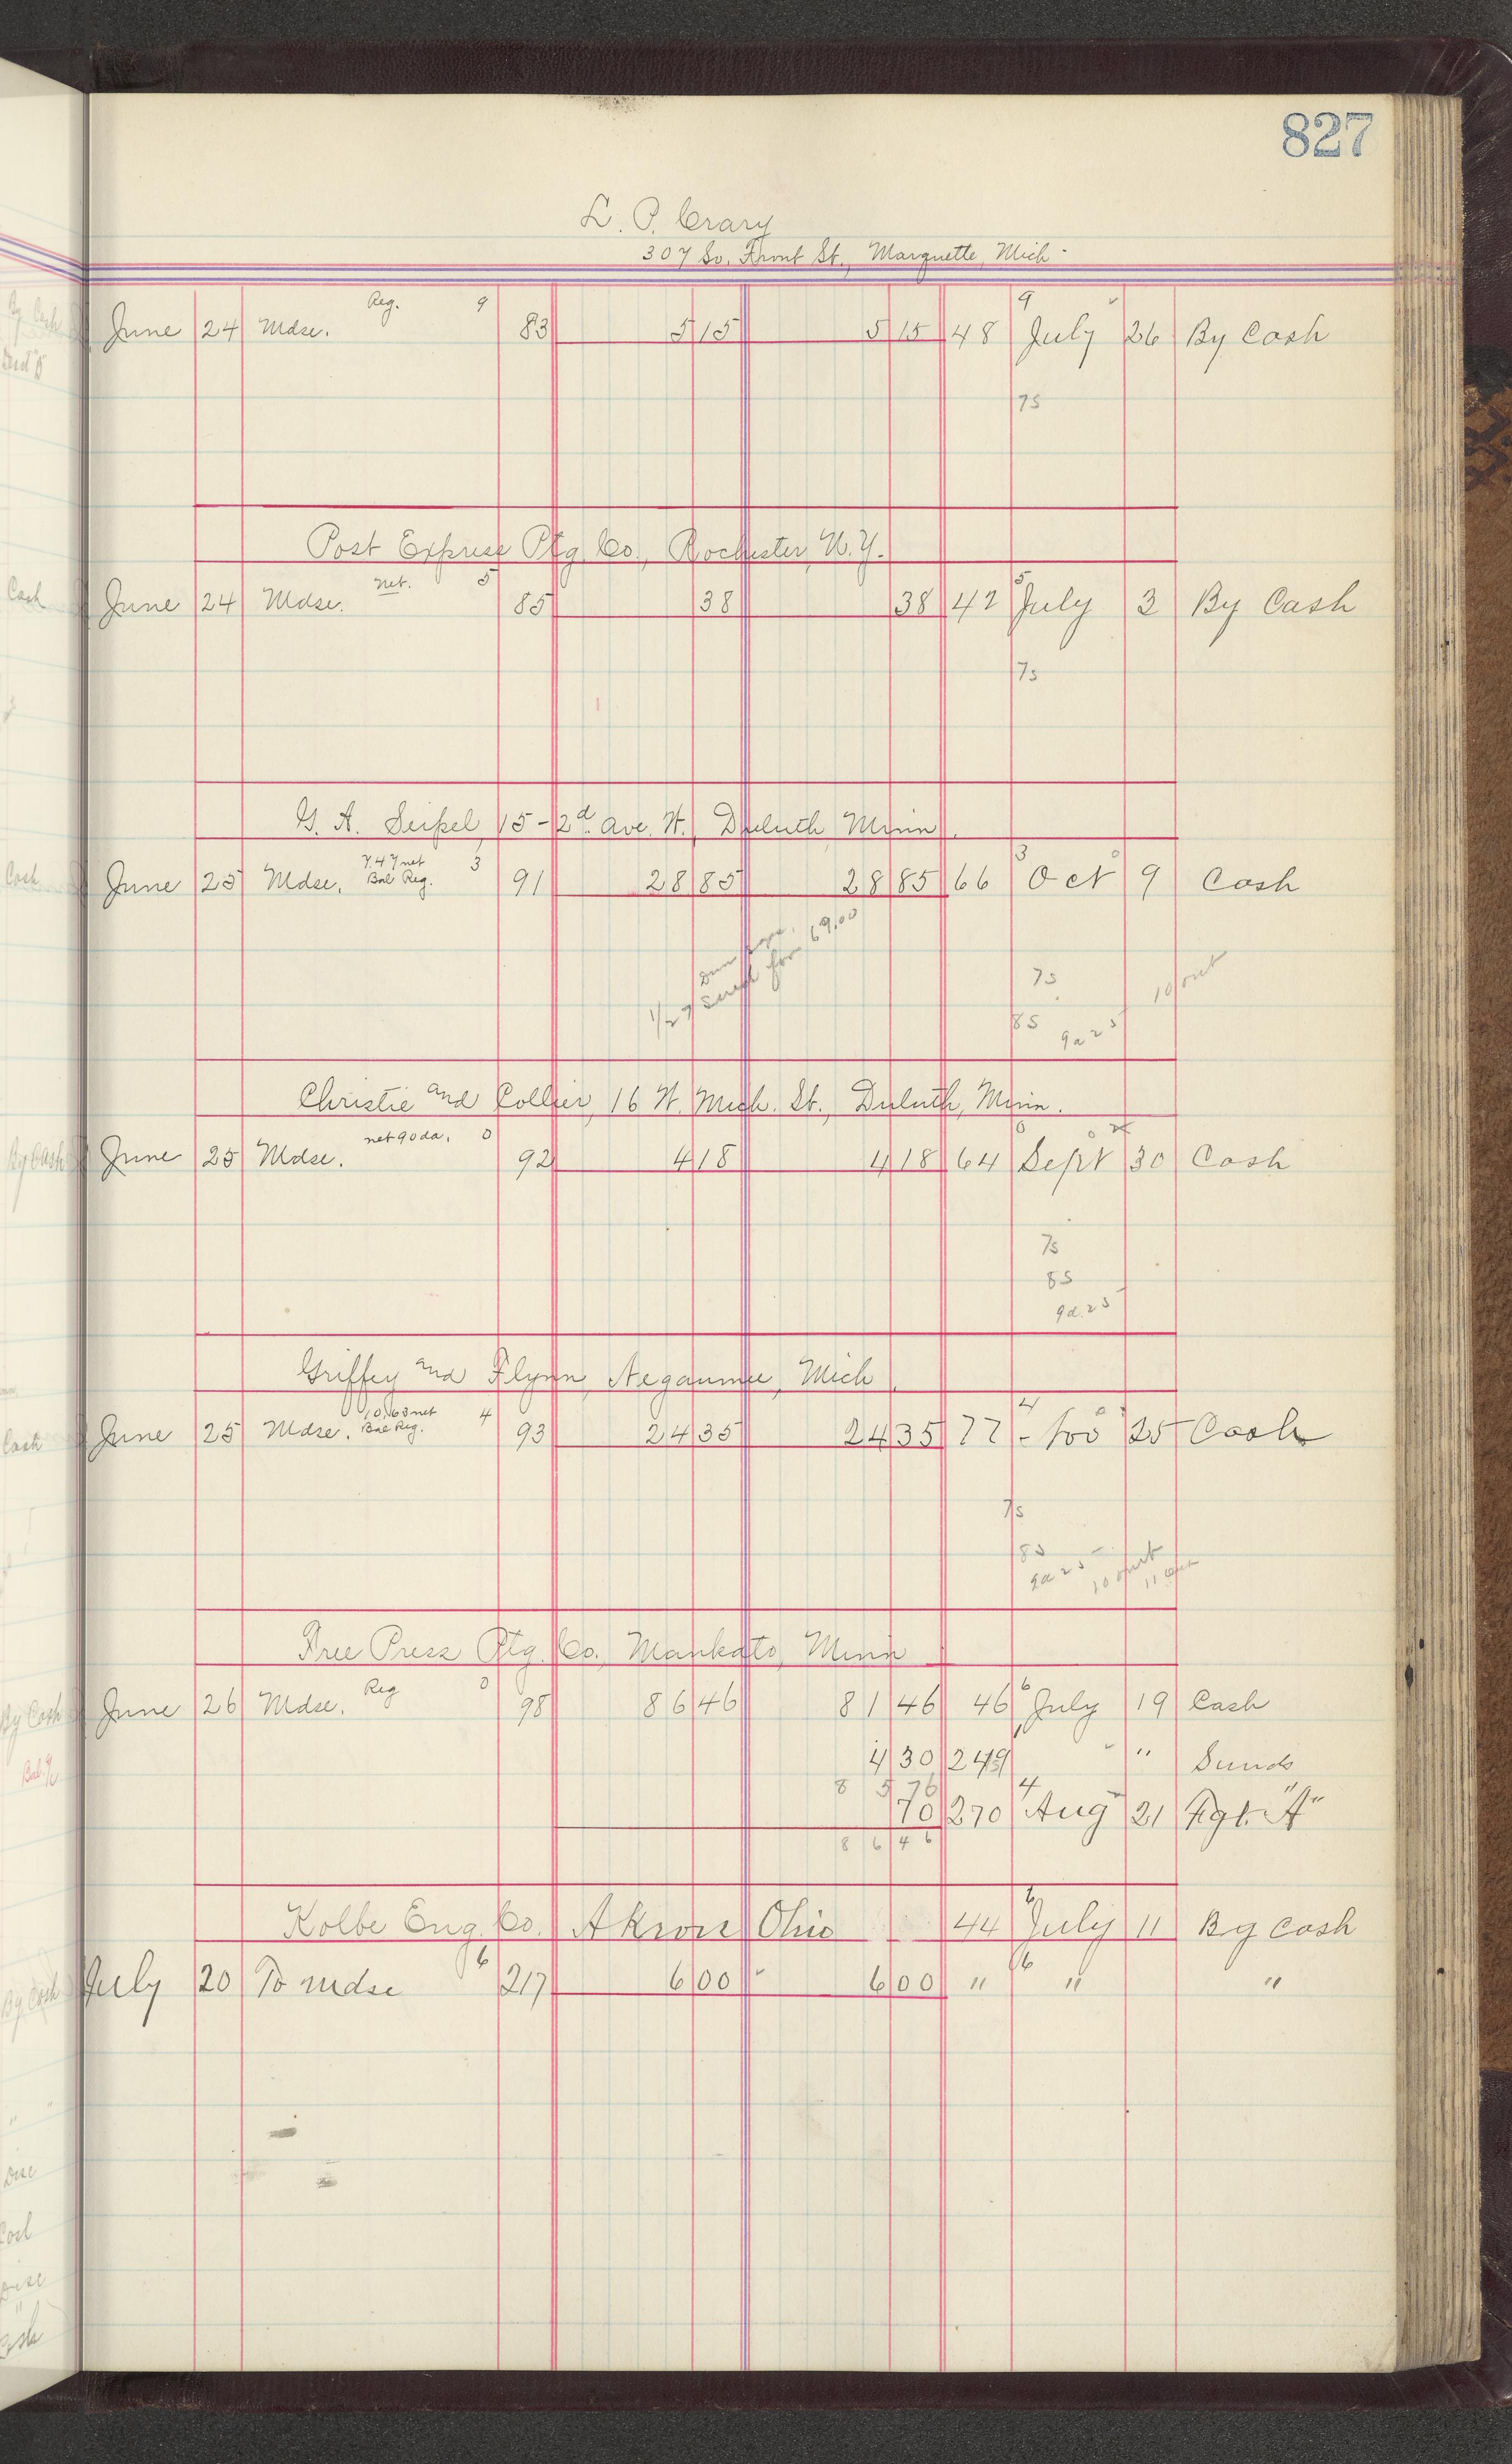 827
L. P. Crary
307 So. Front St., Marquette, Mich.
Reg. 9 9
June 24 Mdse. 83 5 15 5 15 48 July 26 By Cash
7s
Post Express Ptg. Co., Rochester, N.Y.
net. 5 5
June 24 Mdse. 85 38 38 42 July 3 By Cash
7s
G. A. Seipel, 15 - 2d. Ave. W., Duluth, Minn.
7.47 net 3 3
June 25 Mdse. Bal Reg. 91 28 85 28 85 66 Oct 9 Cash
1/27 for 69.00
7s 10 out
8s 9a25
Christie and Collier, 16 W. Mich. St., Duluth, Minn.
net 90 da. 0 0
June 25 Mdse. 92 4 18 4 18 64 Sept 30 Cash
7s
8s
9d.25
Griffey and Flynn, Negaunee, Mich.
10.63 net 4 4
June 25 Mdse. Bal Reg. 93 24 35 24 35 77 Nov 25 Cash
7s
8s
9a25 10 out 11 out
Free Press Ptg. Co., Mankato, Minn.
Reg 0 6
June 26 Mdse. 98 86 46 81 46 46 July 19 Cash
4 30 249 " Sunds
8 5 76 4
70 270 Aug 21 Fgt. "A"
8 6 4 6
Kolbe Eng. Co. Akron Ohio 44 July 11 By Cash
6 6
July 20 To Mdse 217 6 00 6 00 " " "